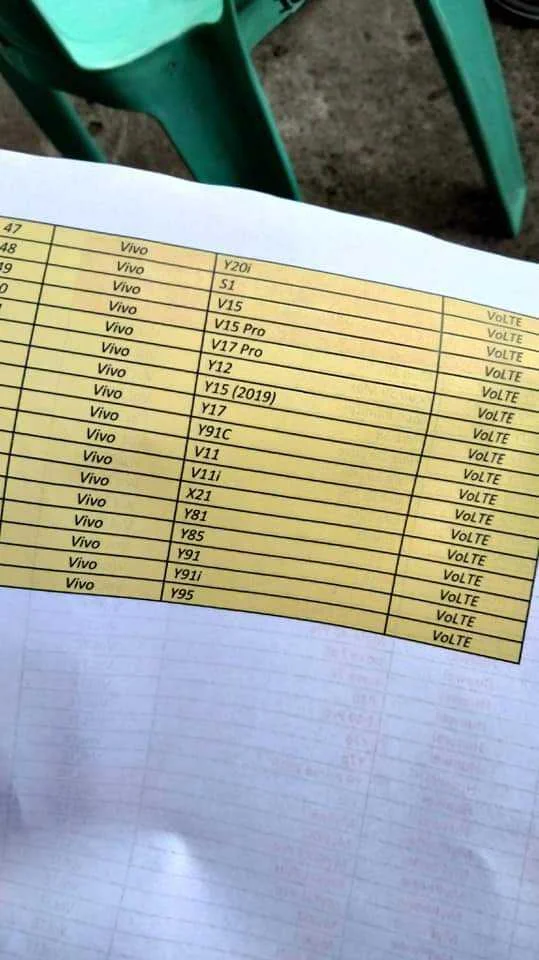 47 Vivo Y20i VoLTE
48 Vivo S1 VoLTE
49 Vivo V15 VoLTE
0 Vivo V15 Pro VoLTE
Vivo V17 Pro VoLTE
Vivo Y12 VoLTE
Vivo Y15 (2019) VoLTE
Vivo Y17 VoLTE
Vivo Y91C VoLTE
Vivo V11 VoLTE
Vivo V11i VoLTE
Vivo X21 VoLTE
Vivo Y81 VoLTE
Vivo Y85 VoLTE
Vivo Y91 VoLTE
Vivo Y91i VoLTE
Vivo Y95 VoLTE